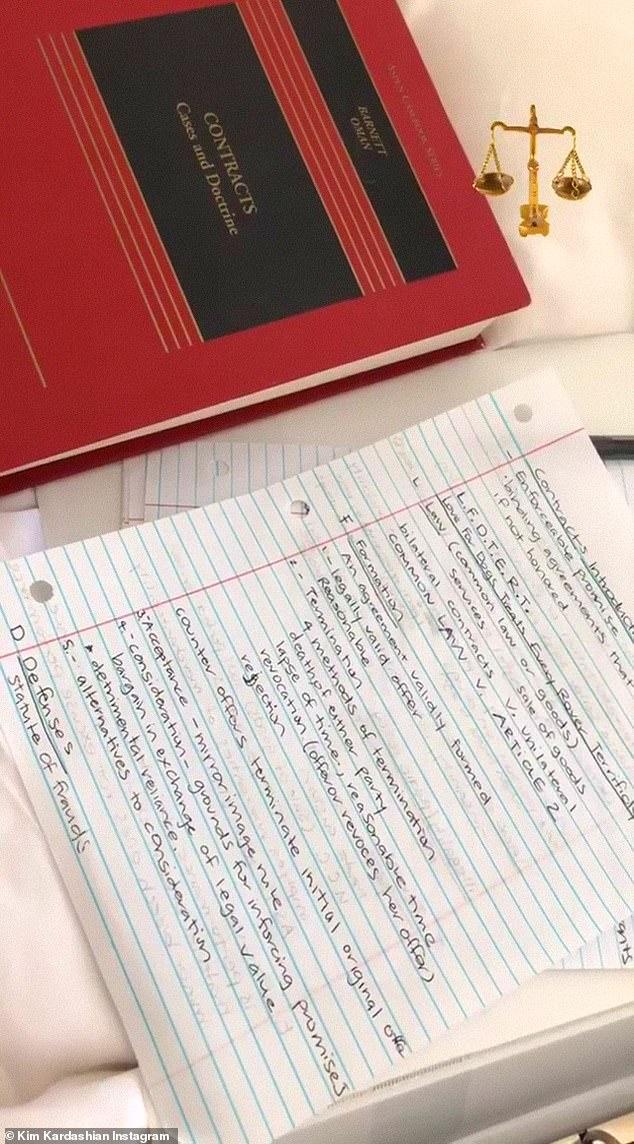 ASPEN CASEBOOK SERIES
BARNETT
OMAN
CONTRACTS
Cases and Doctrine
Contracts
- Enforceable promises
· binding agreements that
if not honored
L.F.D.T.E.R.T.
Love For Dogs Treats Every Rover
L Law (common law or goods)
services v. sale of goods
bilateral contracts v. unilateral
COMMON LAW v. ARTICLE 2
F Formation
An agreement validly formed
1. - legally valid offer
Reasonable
2. - Termination
4 methods of termination
death of either party
lapse of time, reasonable time
revocation (offeror revoces her offer)
rejection
counter offers terminate initial original offe
3. Acceptance - mirror image rule
4. - consideration - grounds for inforcing promises
bargain in exchange of legal value
• detrimental reliance.
5. - alternatives to consideration
D Defenses
statute of frauds
© Kim Kardashian Instagram